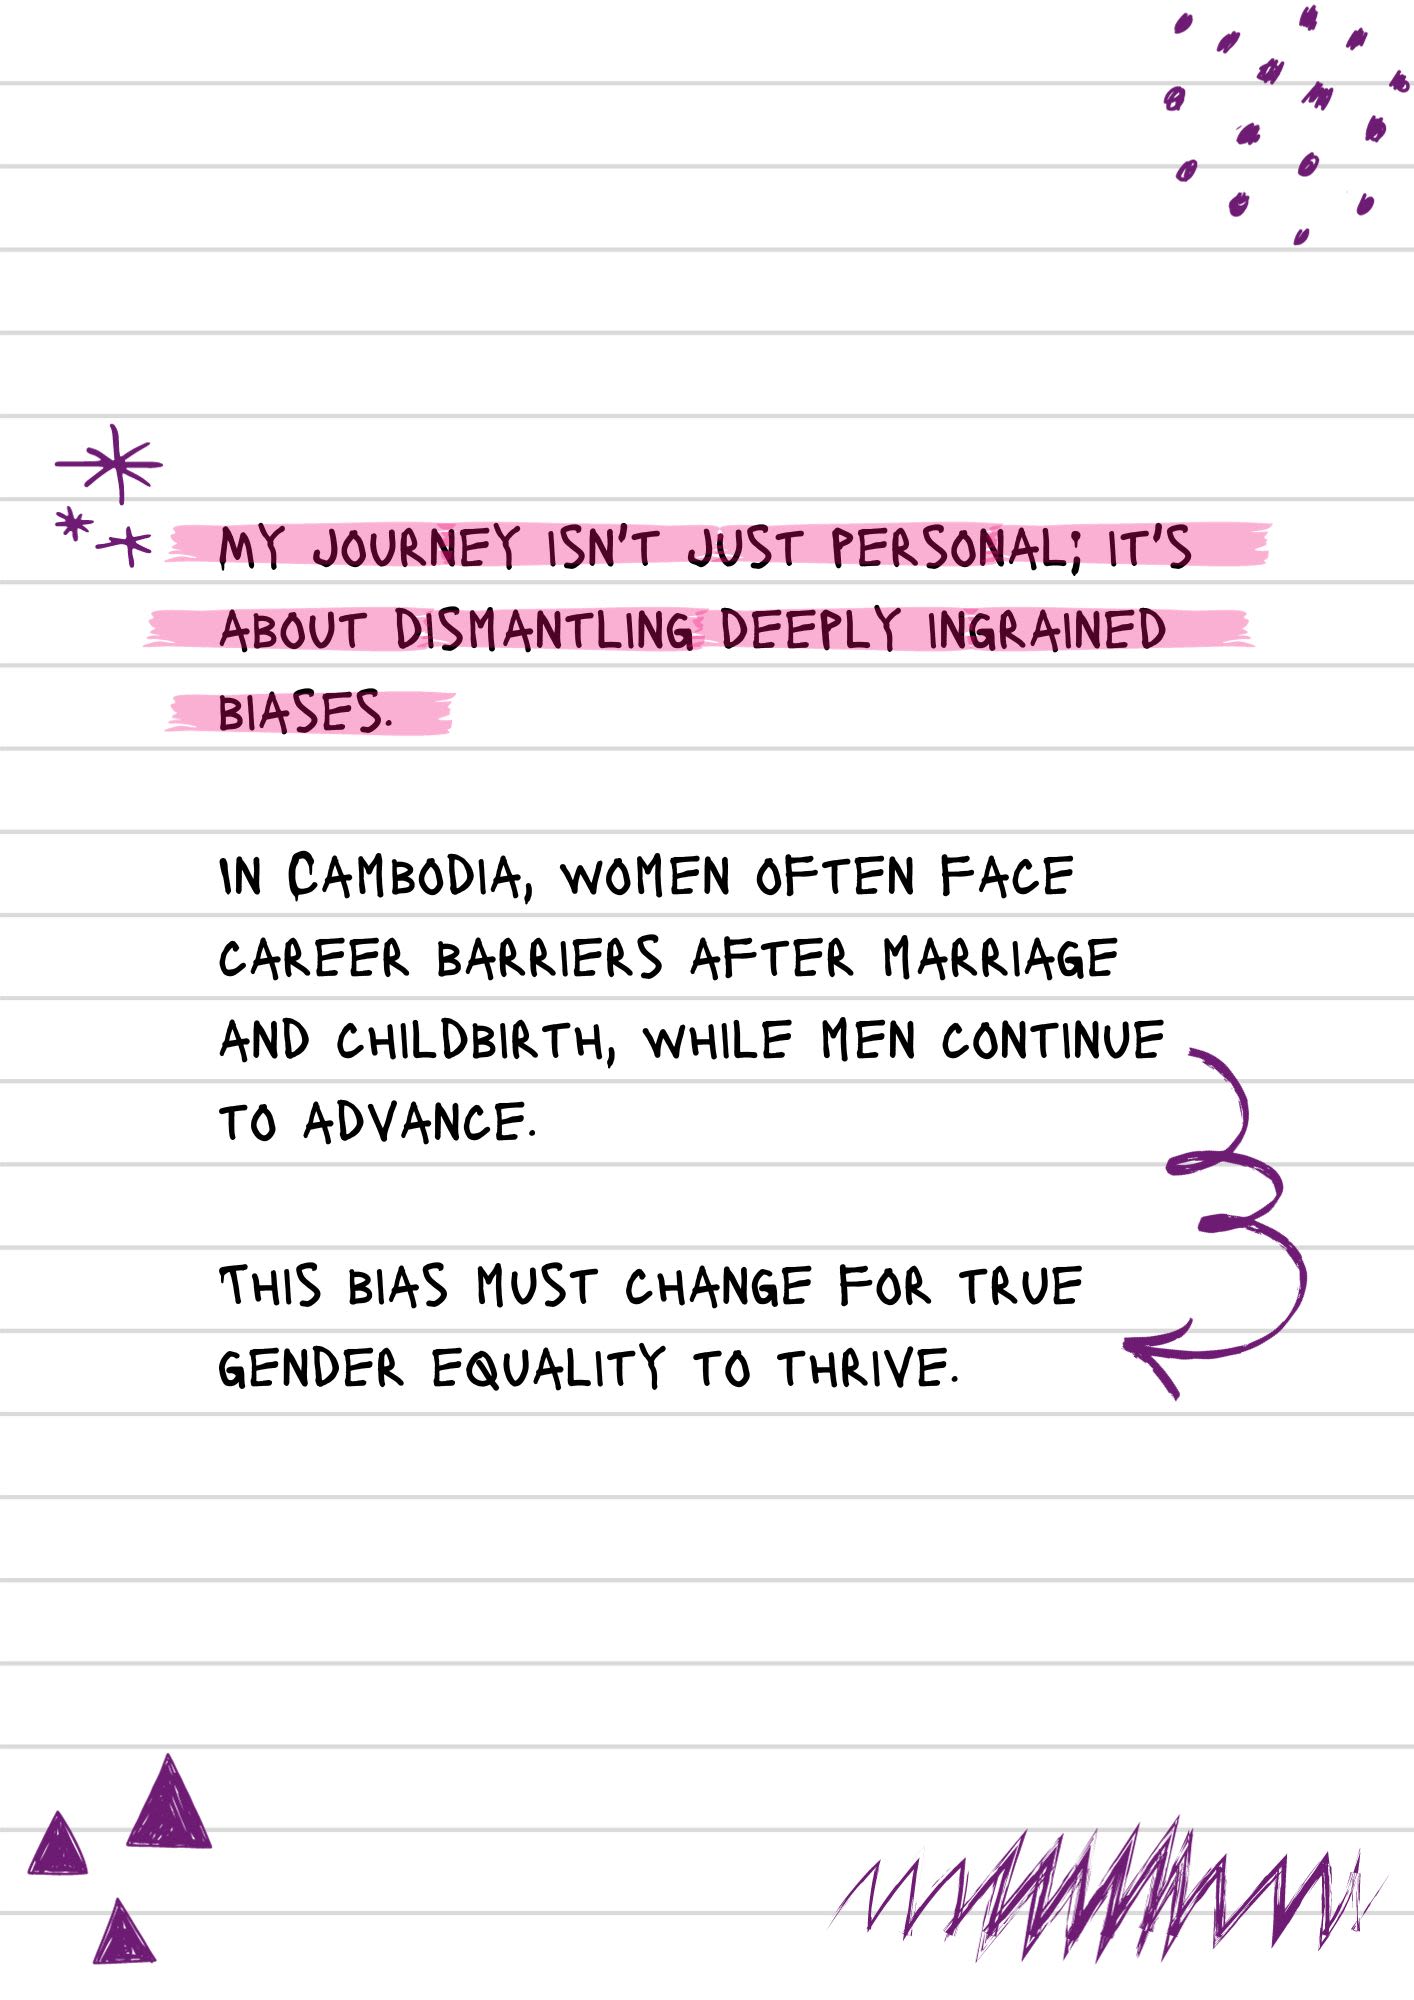 MY JOURNEY ISN'T JUST PERSONAL; IT'S
ABOUT DISMANTLING DEEPLY INGRAINED
BIASES.
IN CAMBODIA, WOMEN OFTEN FACE
CAREER BARRIERS AFTER MARRIAGE
AND CHILDBIRTH, WHILE MEN CONTINUE
TO ADVANCE.
THIS BIAS MUST CHANGE FOR TRUE
GENDER EQUALITY TO THRIVE.